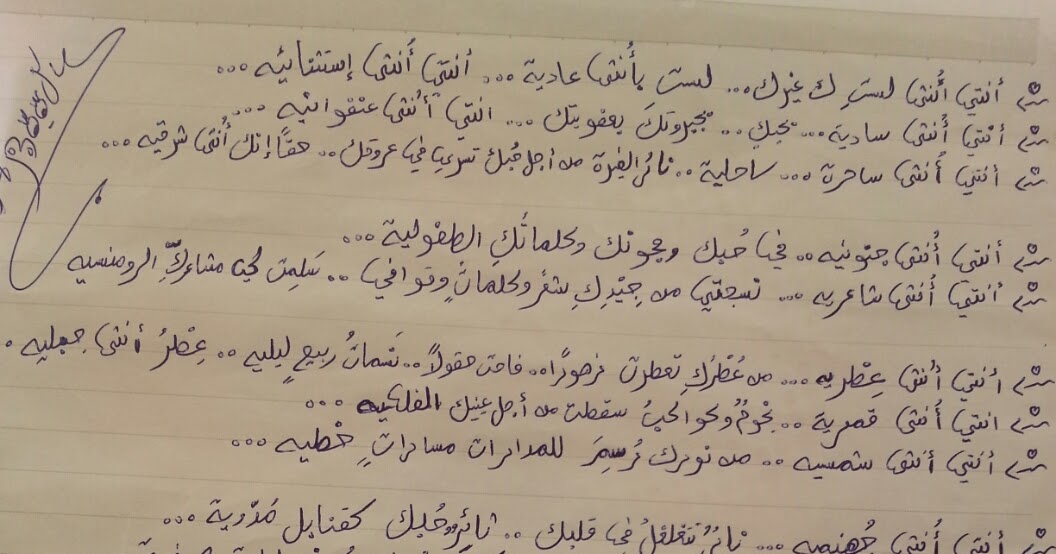 أنتي أُنثى لستِ ك غيرك... لست بأُنثى عادية... أنتي أُنثى إستثنائيه...
أنتي أُنثى سادية... بحبك.. بجبروتكَ بعفويتك... انتي أُنثى عنفوانيه...
أنتي أُنثى ساحرة... ساحلية.. نائر الغيرة من أجل حُبك تسري في عروقك.. حقاً إنك أُنثى شرقيه...
أنتي أُنثى جنونيه.. في حُبك وجنونك وكلماتُكِ الطفولية...
أنتي أُنثى شاعريه... من جِيْدِكِ شعرٌ وكلماتٌ وقوافي.. مشاعركِ الرومنسيه
أنتي أُنثى عِطْريه... من عُطْرُكِ تعطرت زهورًا.. فاحت حقولاً.. نَسَماتُ ربيعٍ ليليه.. عِطْرُ أنثى جبليه.
انتي أُنثى قمرية.. نجومٌ وكواكبُ سقطت من أجل عينيك الفلكيه...
أنتي أنثى شمسيه.. من نورك رُسِمَ للمدارات مسارات خطيه...
أنتي أُنثى جُهنميه... نائرٌ تتغلغلُ في قلبك.. ثائرٌ حُبك كقنابل ذرية...